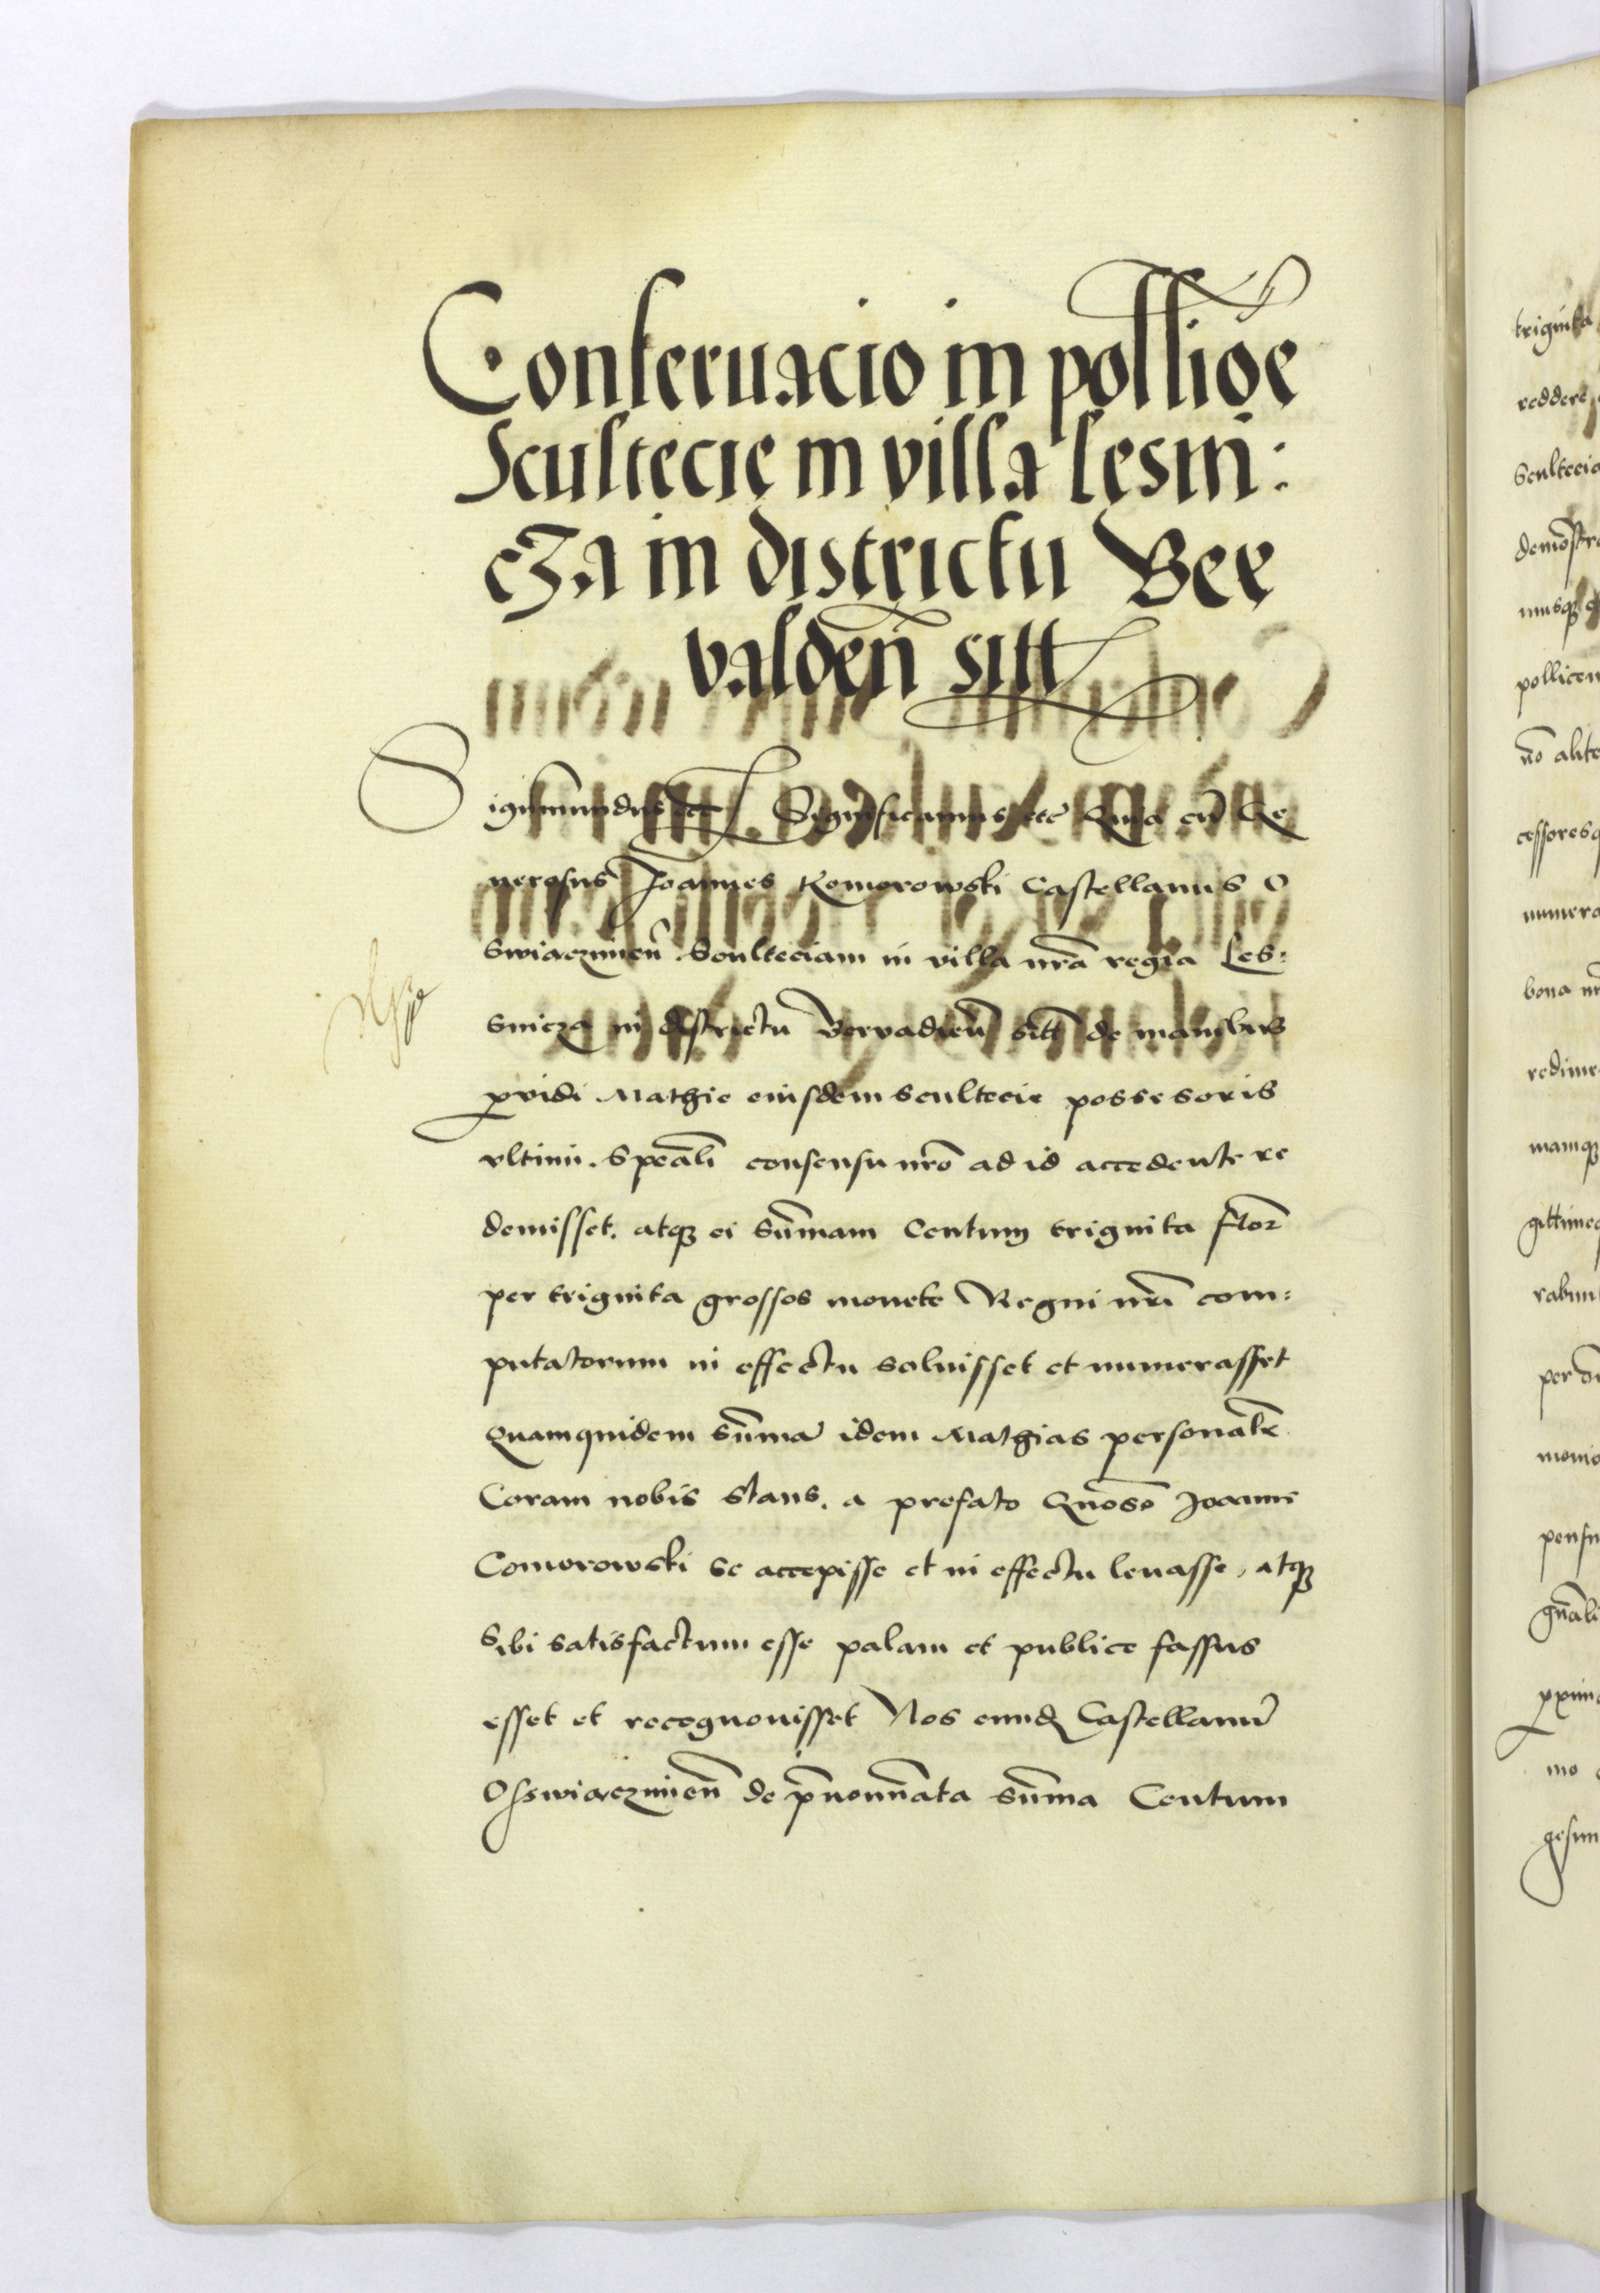 Conseruacio in poss̃ioe
Scultecie in villa Lesni:
cza in districtu Ber
valden̄ sitt
Sigismundus etc Significamus etc Quia cū Ge
nerosus Joannes Komorowski Castellanus O
swiaczimien̄ Sculteciam in villa nr̄a regia Les:
snicza in districtu Bervaldien̄ sitt̄ de manibus
ꝓvidi Mathie eiusdem scultecie possesoris
vltimi. Speāli consensu nr̄o ad id accedente re
demisset. atqꝫ ei sūmam Centum triginta flor̄
per triginta grossos monete Regni nr̄i com:
putatorum in effectu soluisset et numerasset
Quamquidem sūmā idem Mathias personalr̄
Coram nobis stans. a prefato Gn̄oso Joanne
Comorowski se accepisse et in effectu leuasse, atqꝫ
Sibi satisfactum esse palam et publice fassus
esset et recognouisset Nos eund Castellanū
Osswiaczimien̄ de p̄nomīata sūma Centum
triginta
reddere
Scultecia
pollicem
cessoresq
numera
bona nr̄
redime
mamqꝫ
rabun
gn̄ali
mo